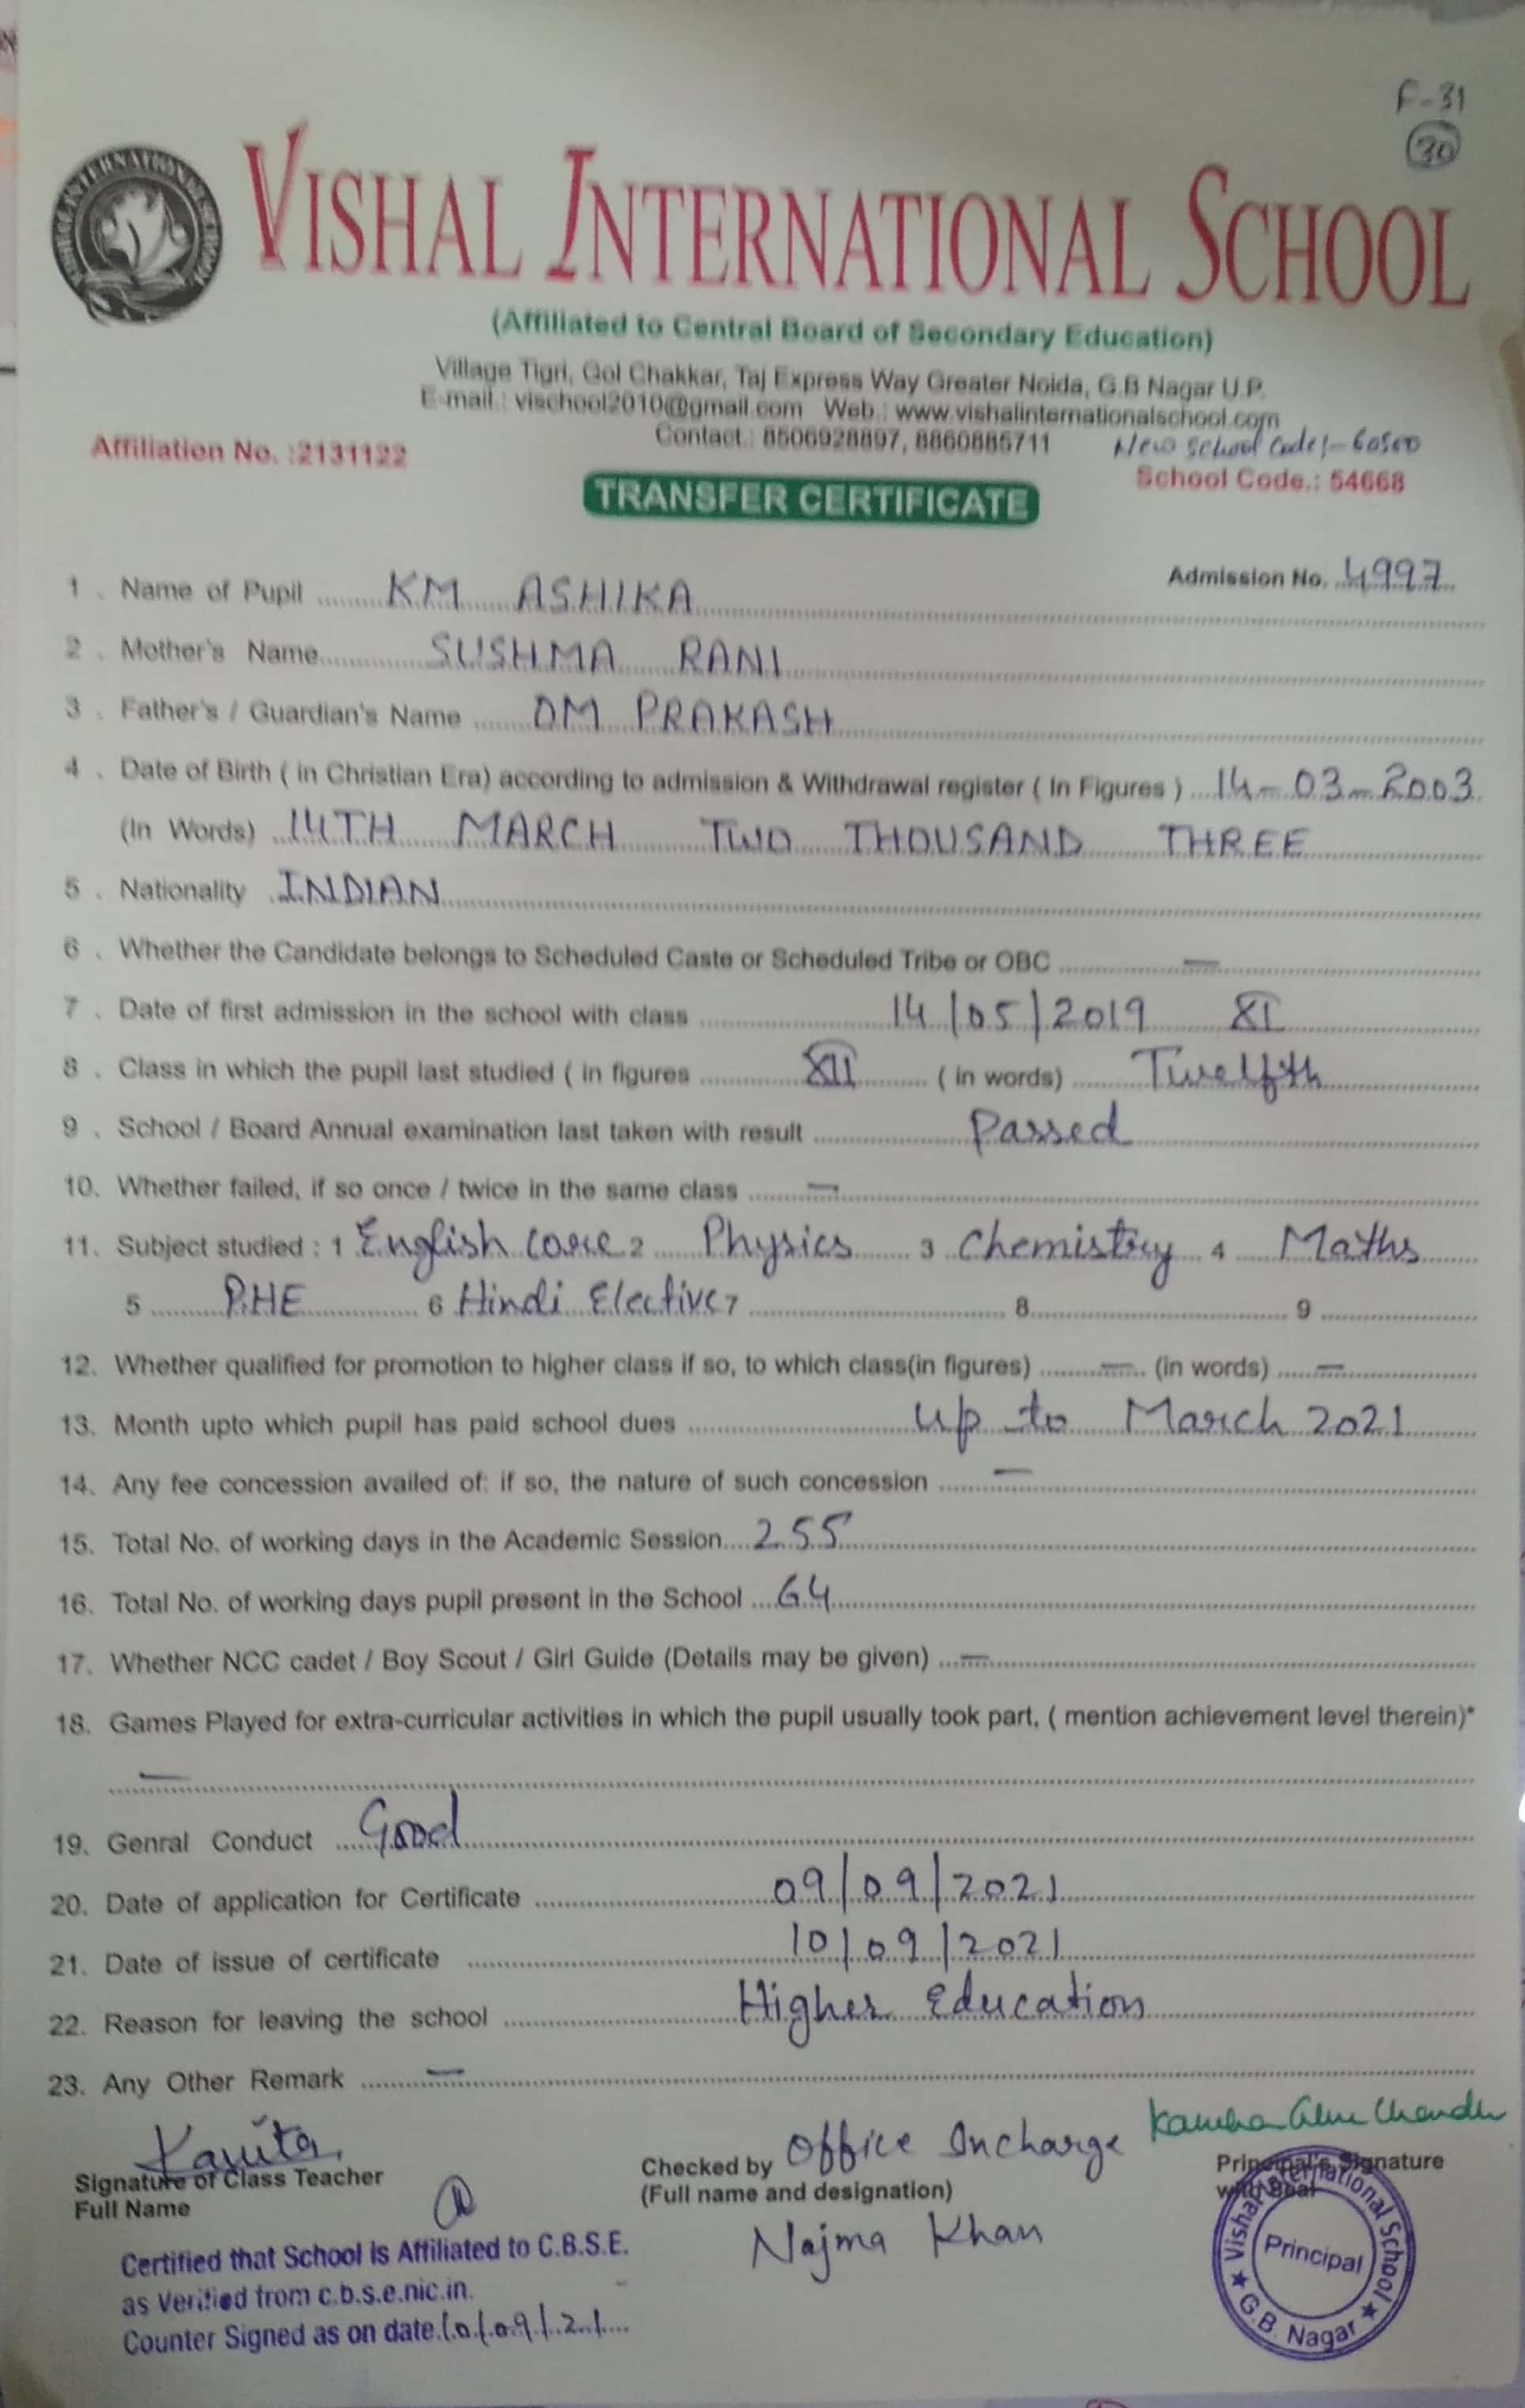 F-31
30
VISHAL INTERNATIONAL SCHOOL
(Affiliated to Central Board of Secondary Education)
Village Tigri, Gol Chakkar, Taj Express Way Greater Noida, G.B Nagar U.P.
E-mail : vischool2010@gmail.com Web : www.vishalinternationalschool.com
Contact : 8506928897, 8860885711 New School Code:- 60500
Affiliation No. :2131122 School Code.: 54668
TRANSFER CERTIFICATE
Admission No. 4997
1 . Name of Pupil KM ASHIKA
2 . Mother's Name SUSHMA RANI
3 . Father's / Guardian's Name OM PRAKASH
4 . Date of Birth ( in Christian Era) according to admission & Withdrawal register ( In Figures ) 14-03-2003
(In Words) 14TH MARCH TWO THOUSAND THREE
5 . Nationality INDIAN
6 . Whether the Candidate belongs to Scheduled Caste or Scheduled Tribe or OBC —
7 . Date of first admission in the school with class 14/05/2019 XI
8 . Class in which the pupil last studied ( in figures XII ( in words) Twelfth
9 . School / Board Annual examination last taken with result Passed
10. Whether failed, if so once / twice in the same class —
11. Subject studied : 1 English Core 2 Physics 3 Chemistry 4 Maths
5 P.HE 6 Hindi Elective 7 8 9
12. Whether qualified for promotion to higher class if so, to which class(in figures) — (in words) —
13. Month upto which pupil has paid school dues up to March 2021
14. Any fee concession availed of: if so, the nature of such concession —
15. Total No. of working days in the Academic Session 255
16. Total No. of working days pupil present in the School 64
17. Whether NCC cadet / Boy Scout / Girl Guide (Details may be given) —
18. Games Played for extra-curricular activities in which the pupil usually took part, ( mention achievement level therein)*
—
19. Genral Conduct Good
20. Date of application for Certificate 09/09/2021
21. Date of issue of certificate 10/09/2021
22. Reason for leaving the school Higher Education
23. Any Other Remark —
Kavita
Signature of Class Teacher
Full Name
Checked by Office Incharge
(Full name and designation)
Najma Khan
Principal's Signature
with Seal
Vishal International School
Principal
★ G.B. Nagar ★
Certified that School is Affiliated to C.B.S.E.
as Verified from c.b.s.e.nic.in.
Counter Signed as on date 10/09/21